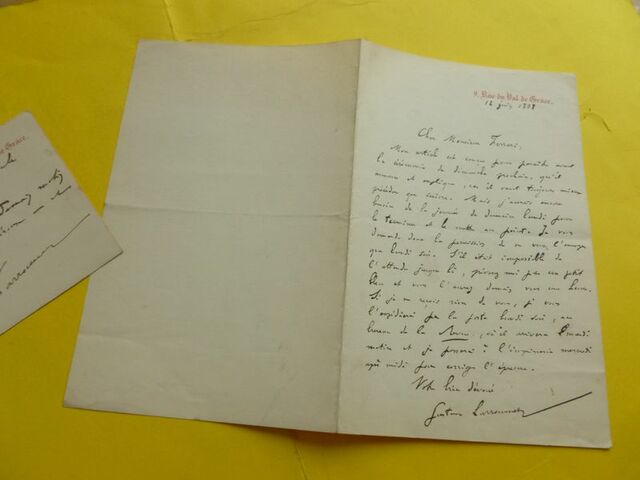 9, Rue du Val de Grâce.
12 juin 1898
Cher Monsieur Ferrari,
Mon article est conçu pour paraître avant
la cérémonie de dimanche prochain, qu'il
annonce et explique, car il vaut toujours mieux
précéder que suivre. Mais j'aurais encore
besoin de la journée de demain lundi pour
le terminer et le mettre au point. Je vous
demande donc la permission de ne vous l'envoyer
que lundi soir. S'il était impossible de
l'attendre jusque là, prévenez moi par un petit
bleu et vous l'aurez demain vers une heure.
Si je ne reçois rien de vous, je vous
l'expédierai par la poste lundi soir, au
bureau de la Revue, où il arrivera mardi
matin et je passerai à l'imprimerie mercredi
après midi pour corriger l'épreuve.
Votre bien dévoué
Gustave Larroumet
de Grâce.
demain matin
Larroumet